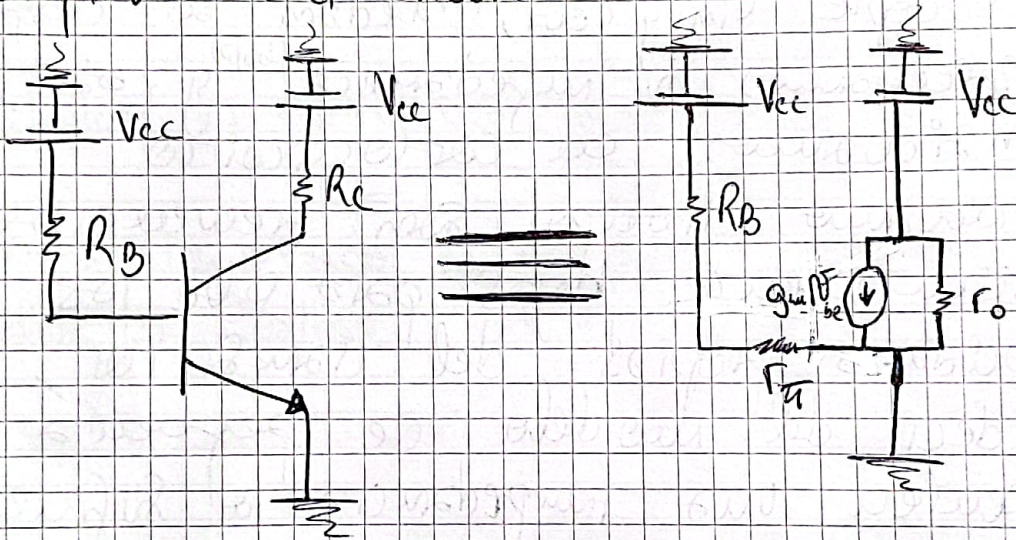 Vcc
Vcc
R_B
R_C
Vcc
Vcc
R_B
g_m v_be
r_o
r_π